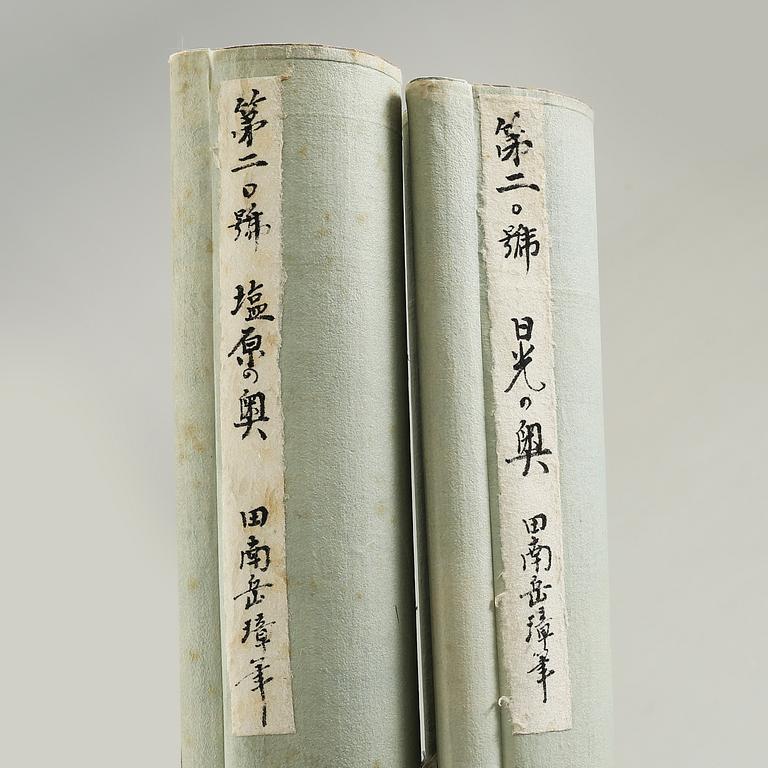 第二〇號 塩原の奥 田南岳璋筆
第二〇號 日光の奥 田南岳璋筆